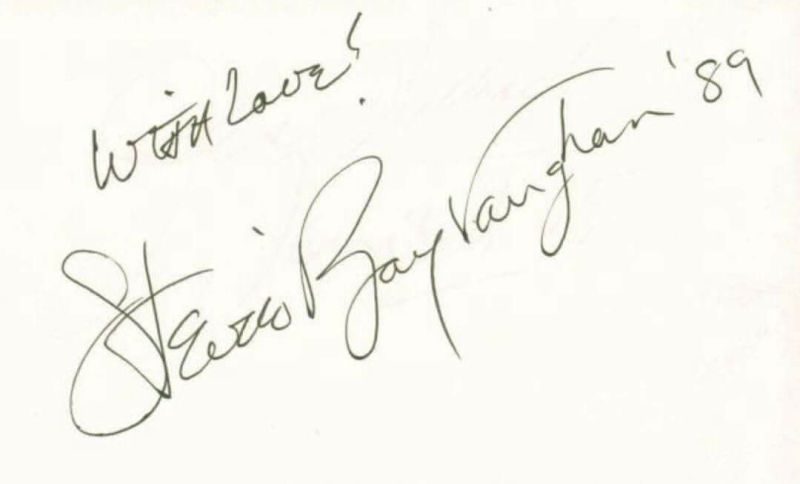 With Love!
Stevie Ray Vaughan '89